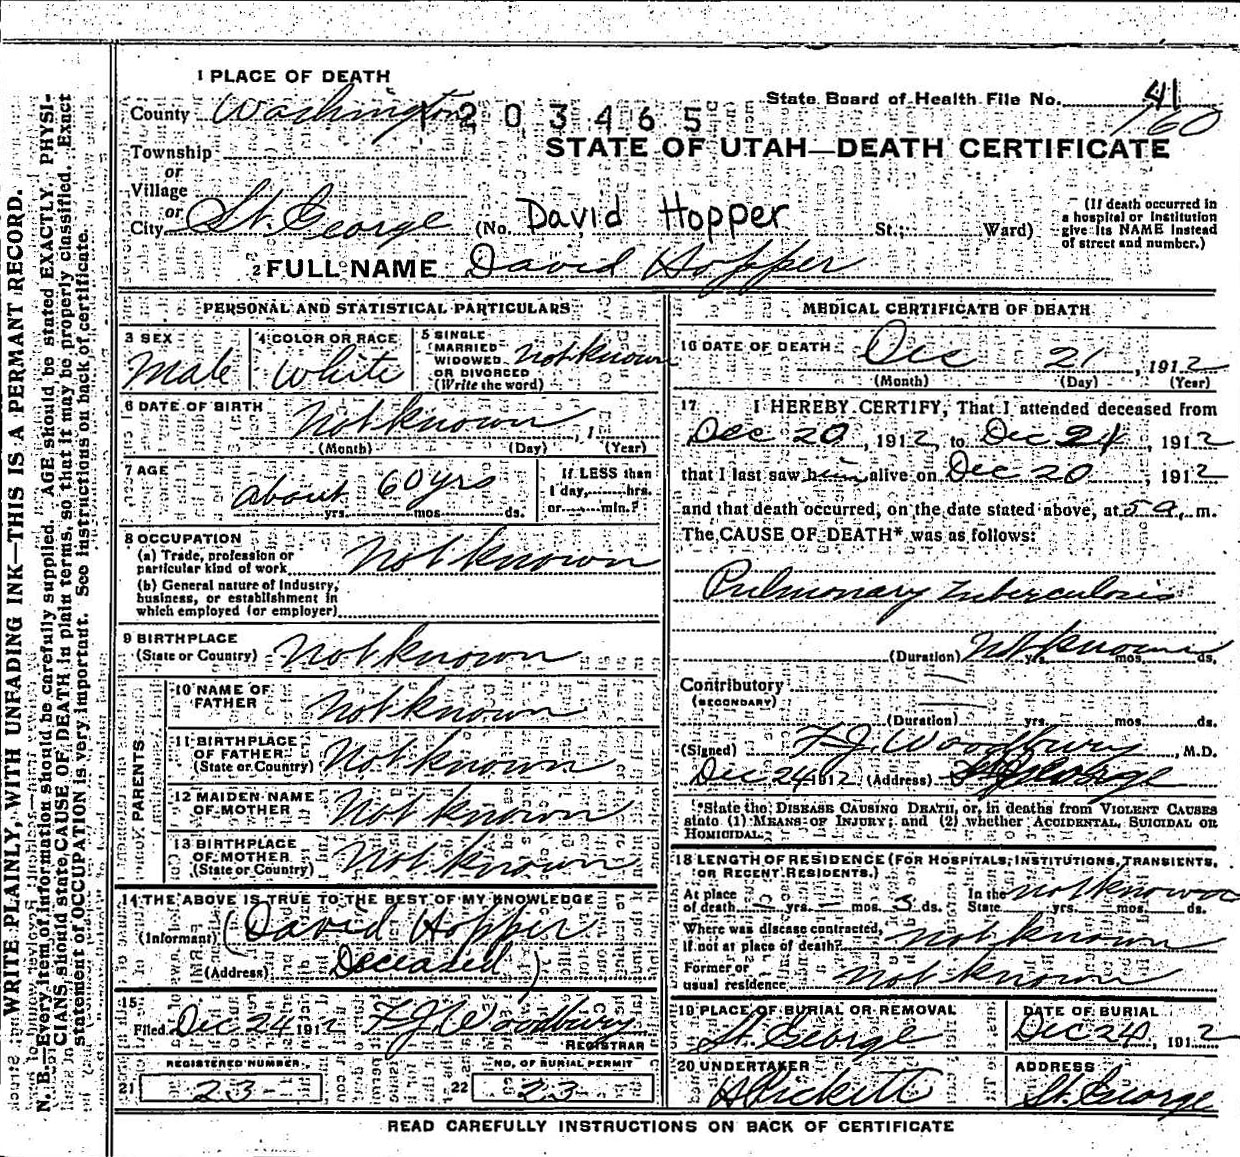 WRITE PLAINLY, WITH UNFADING INK—THIS IS A PERMANT RECORD.
N. B.—Every item of information should be carefully supplied. AGE should be stated EXACTLY. PHYSI-
CIANS should state CAUSE OF DEATH in plain terms, so that it may be properly classified. Exact
statement of OCCUPATION is very important. See instructions on back of certificate.
1 PLACE OF DEATH
County Washington
1203465
State Board of Health File No. 41
160
Township
or
Village
or
City St. George
STATE OF UTAH—DEATH CERTIFICATE
(No. David Hopper St.; Ward)
(If death occurred in
a hospital or institution
give its NAME instead
of street and number.)
2 FULL NAME David Hopper
PERSONAL AND STATISTICAL PARTICULARS
3 SEX
Male
4 COLOR OR RACE
White
5 SINGLE
MARRIED
WIDOWED
OR DIVORCED
(Write the word)
not known
6 DATE OF BIRTH
Not known, 1
(Month) (Day) (Year)
7 AGE
about 60 yrs
yrs. mos. ds.
If LESS than
1 day, hrs.
or min.?
8 OCCUPATION
(a) Trade, profession or
particular kind of work Not known
(b) General nature of Industry,
business, or establishment in
which employed (or employer)
9 BIRTHPLACE
(State or Country) Not known
PARENTS
10 NAME OF
FATHER
Not known
11 BIRTHPLACE
OF FATHER
(State or Country)
Not known
12 MAIDEN NAME
OF MOTHER
Not known
13 BIRTHPLACE
OF MOTHER
(State or Country)
Not known
14 THE ABOVE IS TRUE TO THE BEST OF MY KNOWLEDGE
(Informant) (David Hopper
(Address) Deceased)
15
Filed Dec 24 1912 F J Woodbury
REGISTRAR
REGISTERED NUMBER
21 23-
NO. OF BURIAL PERMIT
22 23
MEDICAL CERTIFICATE OF DEATH
16 DATE OF DEATH Dec 21, 1912
(Month) (Day) (Year)
17 I HEREBY CERTIFY, That I attended deceased from
Dec 20, 1912, to Dec 21, 1912
that I last saw him alive on Dec 20, 1912
and that death occurred, on the date stated above, at 5 a. m.
The CAUSE OF DEATH* was as follows:
Pulmonary Tuberculosis
(Duration) Not known yrs. mos. ds.
Contributory
(SECONDARY)
(Duration) yrs. mos. ds.
(Signed) F. J. Woodbury, M.D.
Dec 24 1912 (Address) St George
*State the DISEASE CAUSING DEATH, or, in deaths from VIOLENT CAUSES
state (1) MEANS OF INJURY; and (2) whether ACCIDENTAL, SUICIDAL OR
HOMICIDAL.
18 LENGTH OF RESIDENCE (FOR HOSPITALS, INSTITUTIONS, TRANSIENTS,
OR RECENT RESIDENTS.)
At place
of death yrs. mos. 3 ds.
In the
State not known yrs. mos. ds.
Where was disease contracted,
if not at place of death? not known
Former or
usual residence not known
19 PLACE OF BURIAL OR REMOVAL
St. George
DATE OF BURIAL
Dec 24, 1912
20 UNDERTAKER
Pickett
ADDRESS
St. George
READ CAREFULLY INSTRUCTIONS ON BACK OF CERTIFICATE